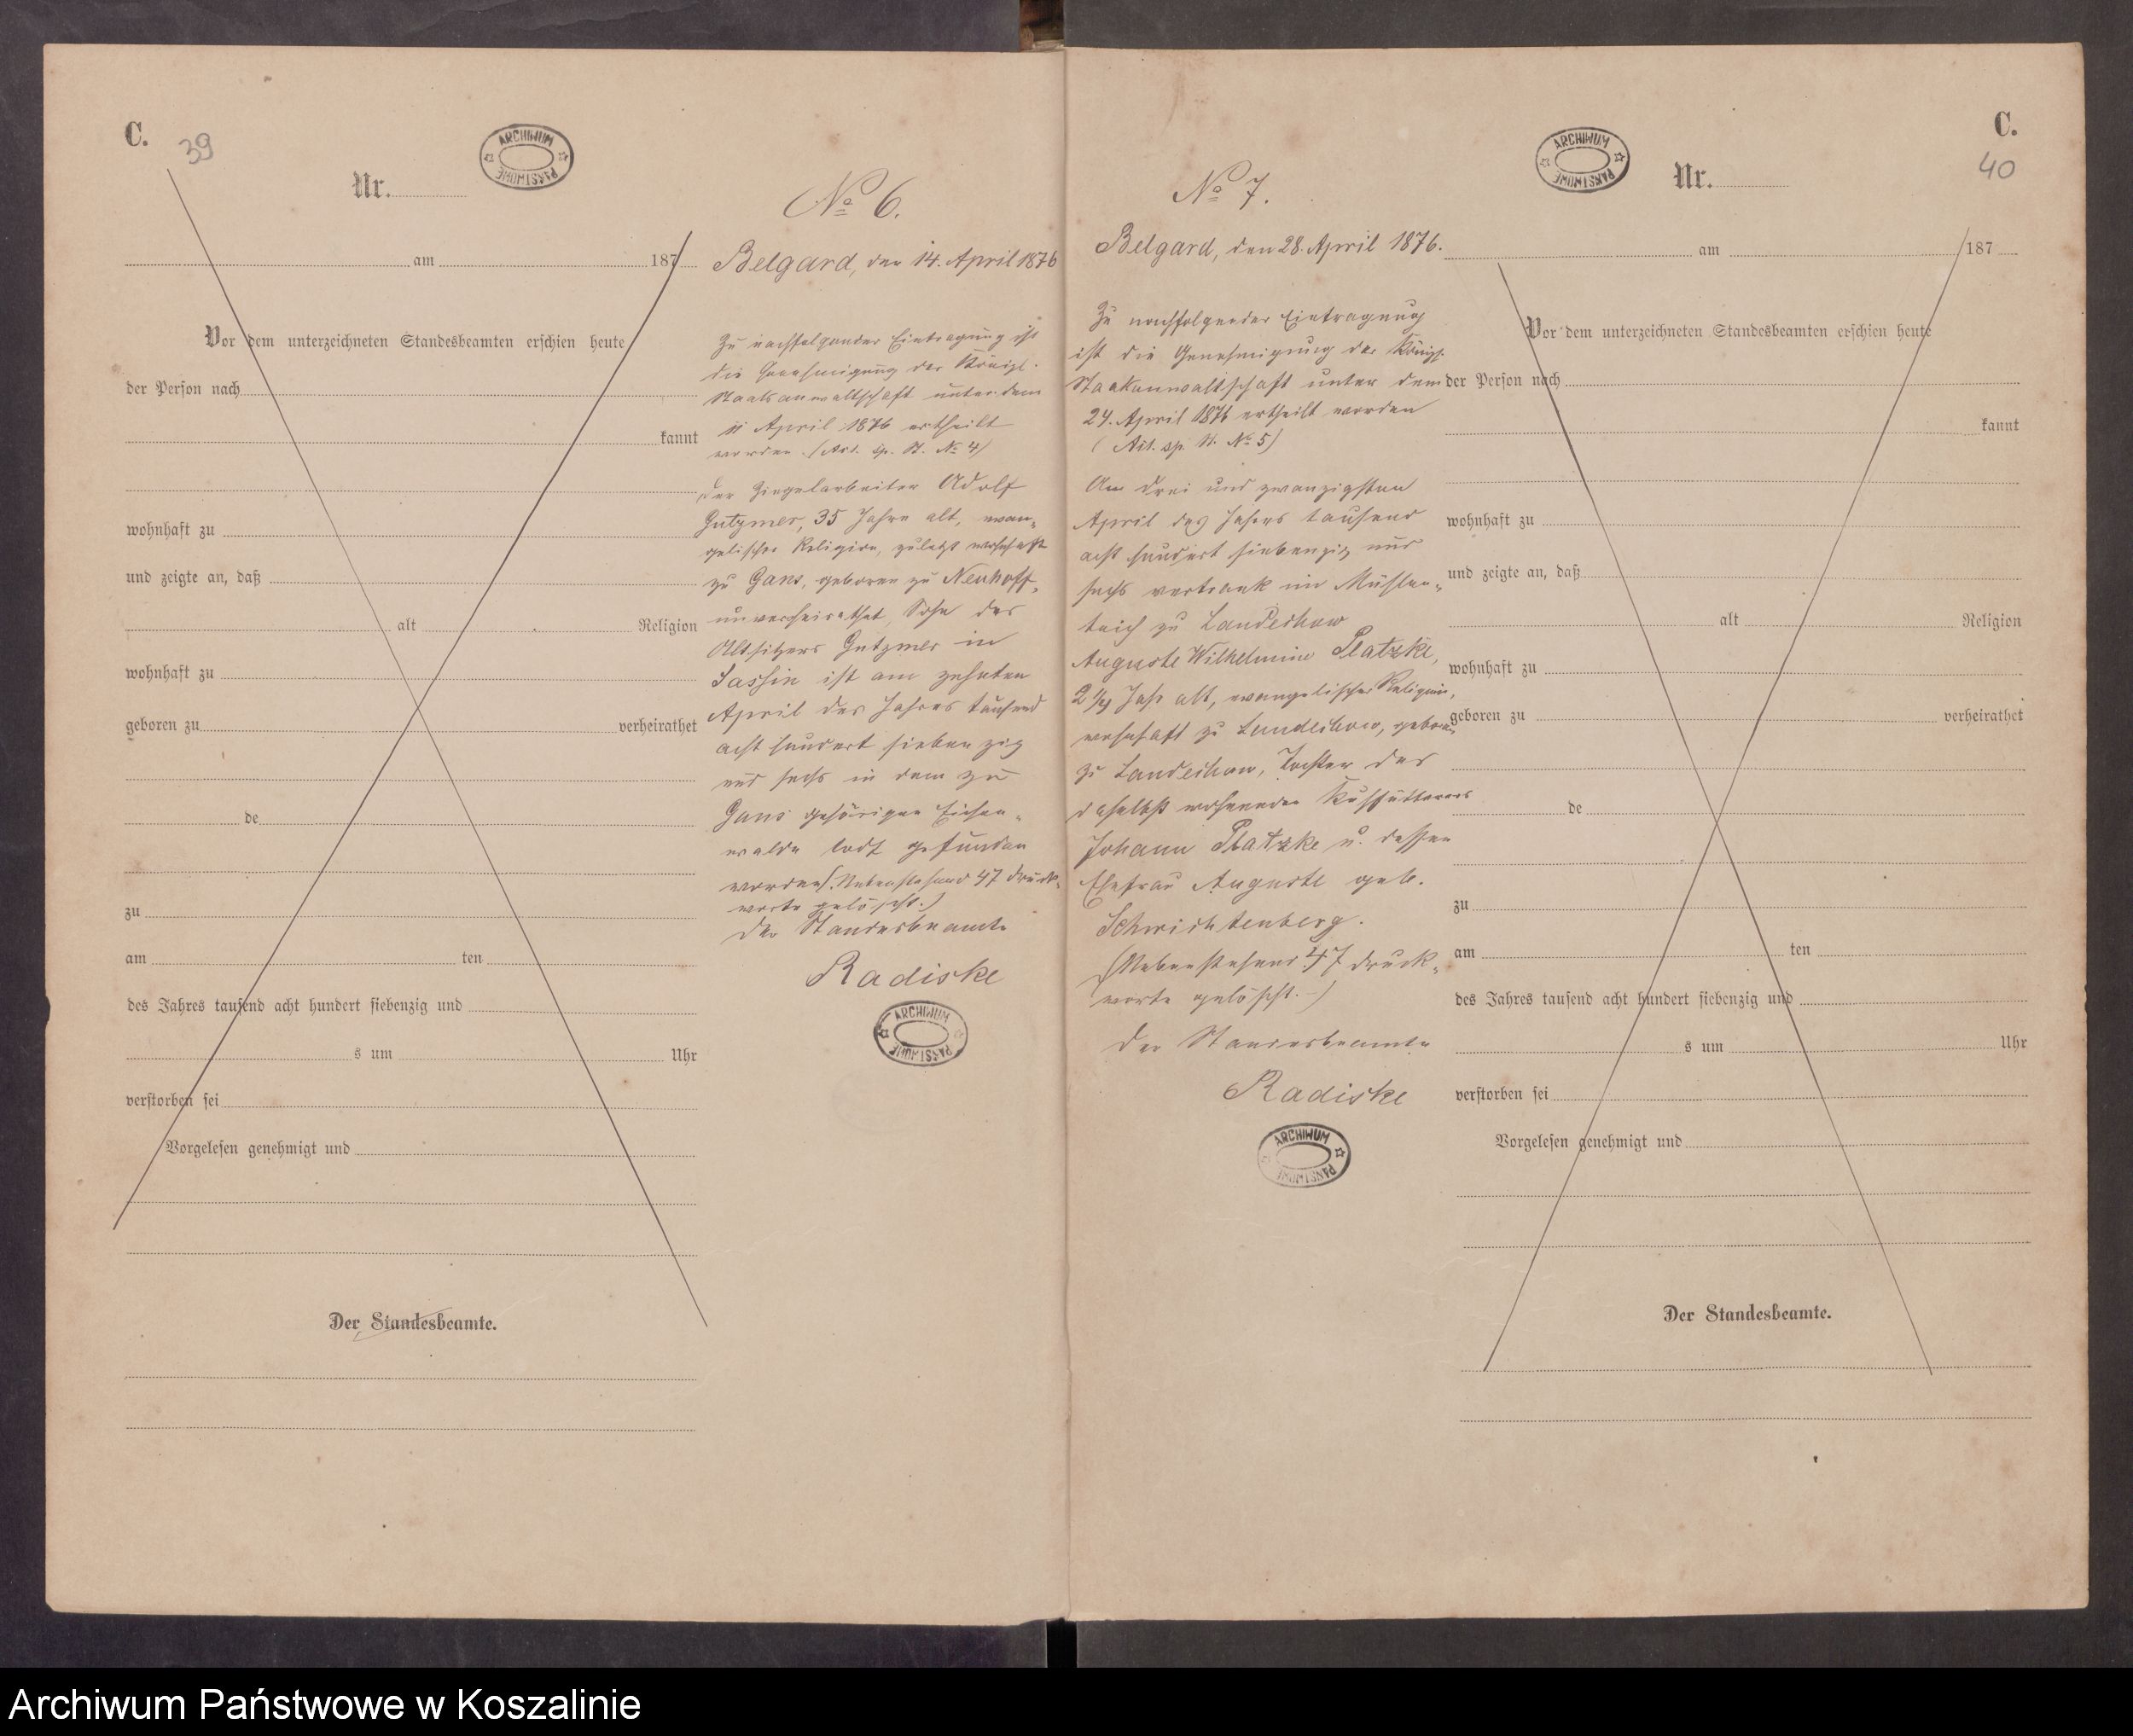 C.
39
ARCHIWUM PAŃSTWOWE
Nr.
am 187
Vor dem unterzeichneten Standesbeamten erschien heute
der Person nach
kannt
wohnhaft zu
und zeigte an, daß
alt Religion
wohnhaft zu
geboren zu verheirathet
de
zu
am ten
des Jahres tausend acht hundert siebenzig und
s um Uhr
verstorben sei
Vorgelesen genehmigt und
Der Standesbeamte.
No 6.
Belgard, den 14. April 1876
Zu nachfolgender Eintragung ist
die Genehmigung der Königl.
Staatsanwaltschaft unter dem
11 April 1876 ertheilt
worden. (Act. sp. St. No 4)
Der Ziegelarbeiter Adolf
Gutzmer, 35 Jahre alt, evan-
gelischer Religion, zuletzt wohnhaft
zu Gans, geboren zu Neuhoff,
unverheirathet, Sohn des
Altsitzers Gutzmer in
Sassin ist am zehnten
April des Jahres tausend
acht hundert sieben zig
und sechs in dem zu
Gans gehörigen Eichen-
walde todt gefunden
worden (Nebenstehend 47 Druck-
worte gelöscht.)
Der Standesbeamte
Radiske
ARCHIWUM PAŃSTWOWE
No 7.
Belgard, den 28. April 1876.
Zu nachfolgender Eintragung
ist die Genehmigung der Königl.
Staatsanwaltschaft unter dem
24. April 1876 ertheilt worden
(Act. sp. St. No 5)
Am drei und zwanzigsten
April des Jahres tausend
acht hundert siebenzig und
sechs ertrank im Mühlen-
teich zu Landechow
Auguste Wilhelmine Platzke,
2 1/4 Jahr alt, evangelischer Religion,
wohnhaft zu Landechow, geboren
zu Landechow, Tochter des
daselbst wohnenden Kuhfütterers
Johann Platzke u. dessen
Ehefrau Auguste geb.
Schwichtenberg.
(Nebenstehend 47 Druck-
worte gelöscht.)
Der Standesbeamte
Radiske
ARCHIWUM PAŃSTWOWE
C.
40
ARCHIWUM PAŃSTWOWE
Nr.
am 187
Vor dem unterzeichneten Standesbeamten erschien heute
der Person nach
kannt
wohnhaft zu
und zeigte an, daß
alt Religion
wohnhaft zu
geboren zu verheirathet
de
zu
am ten
des Jahres tausend acht hundert siebenzig und
s um Uhr
verstorben sei
Vorgelesen genehmigt und
Der Standesbeamte.
Archiwum Państwowe w Koszalinie